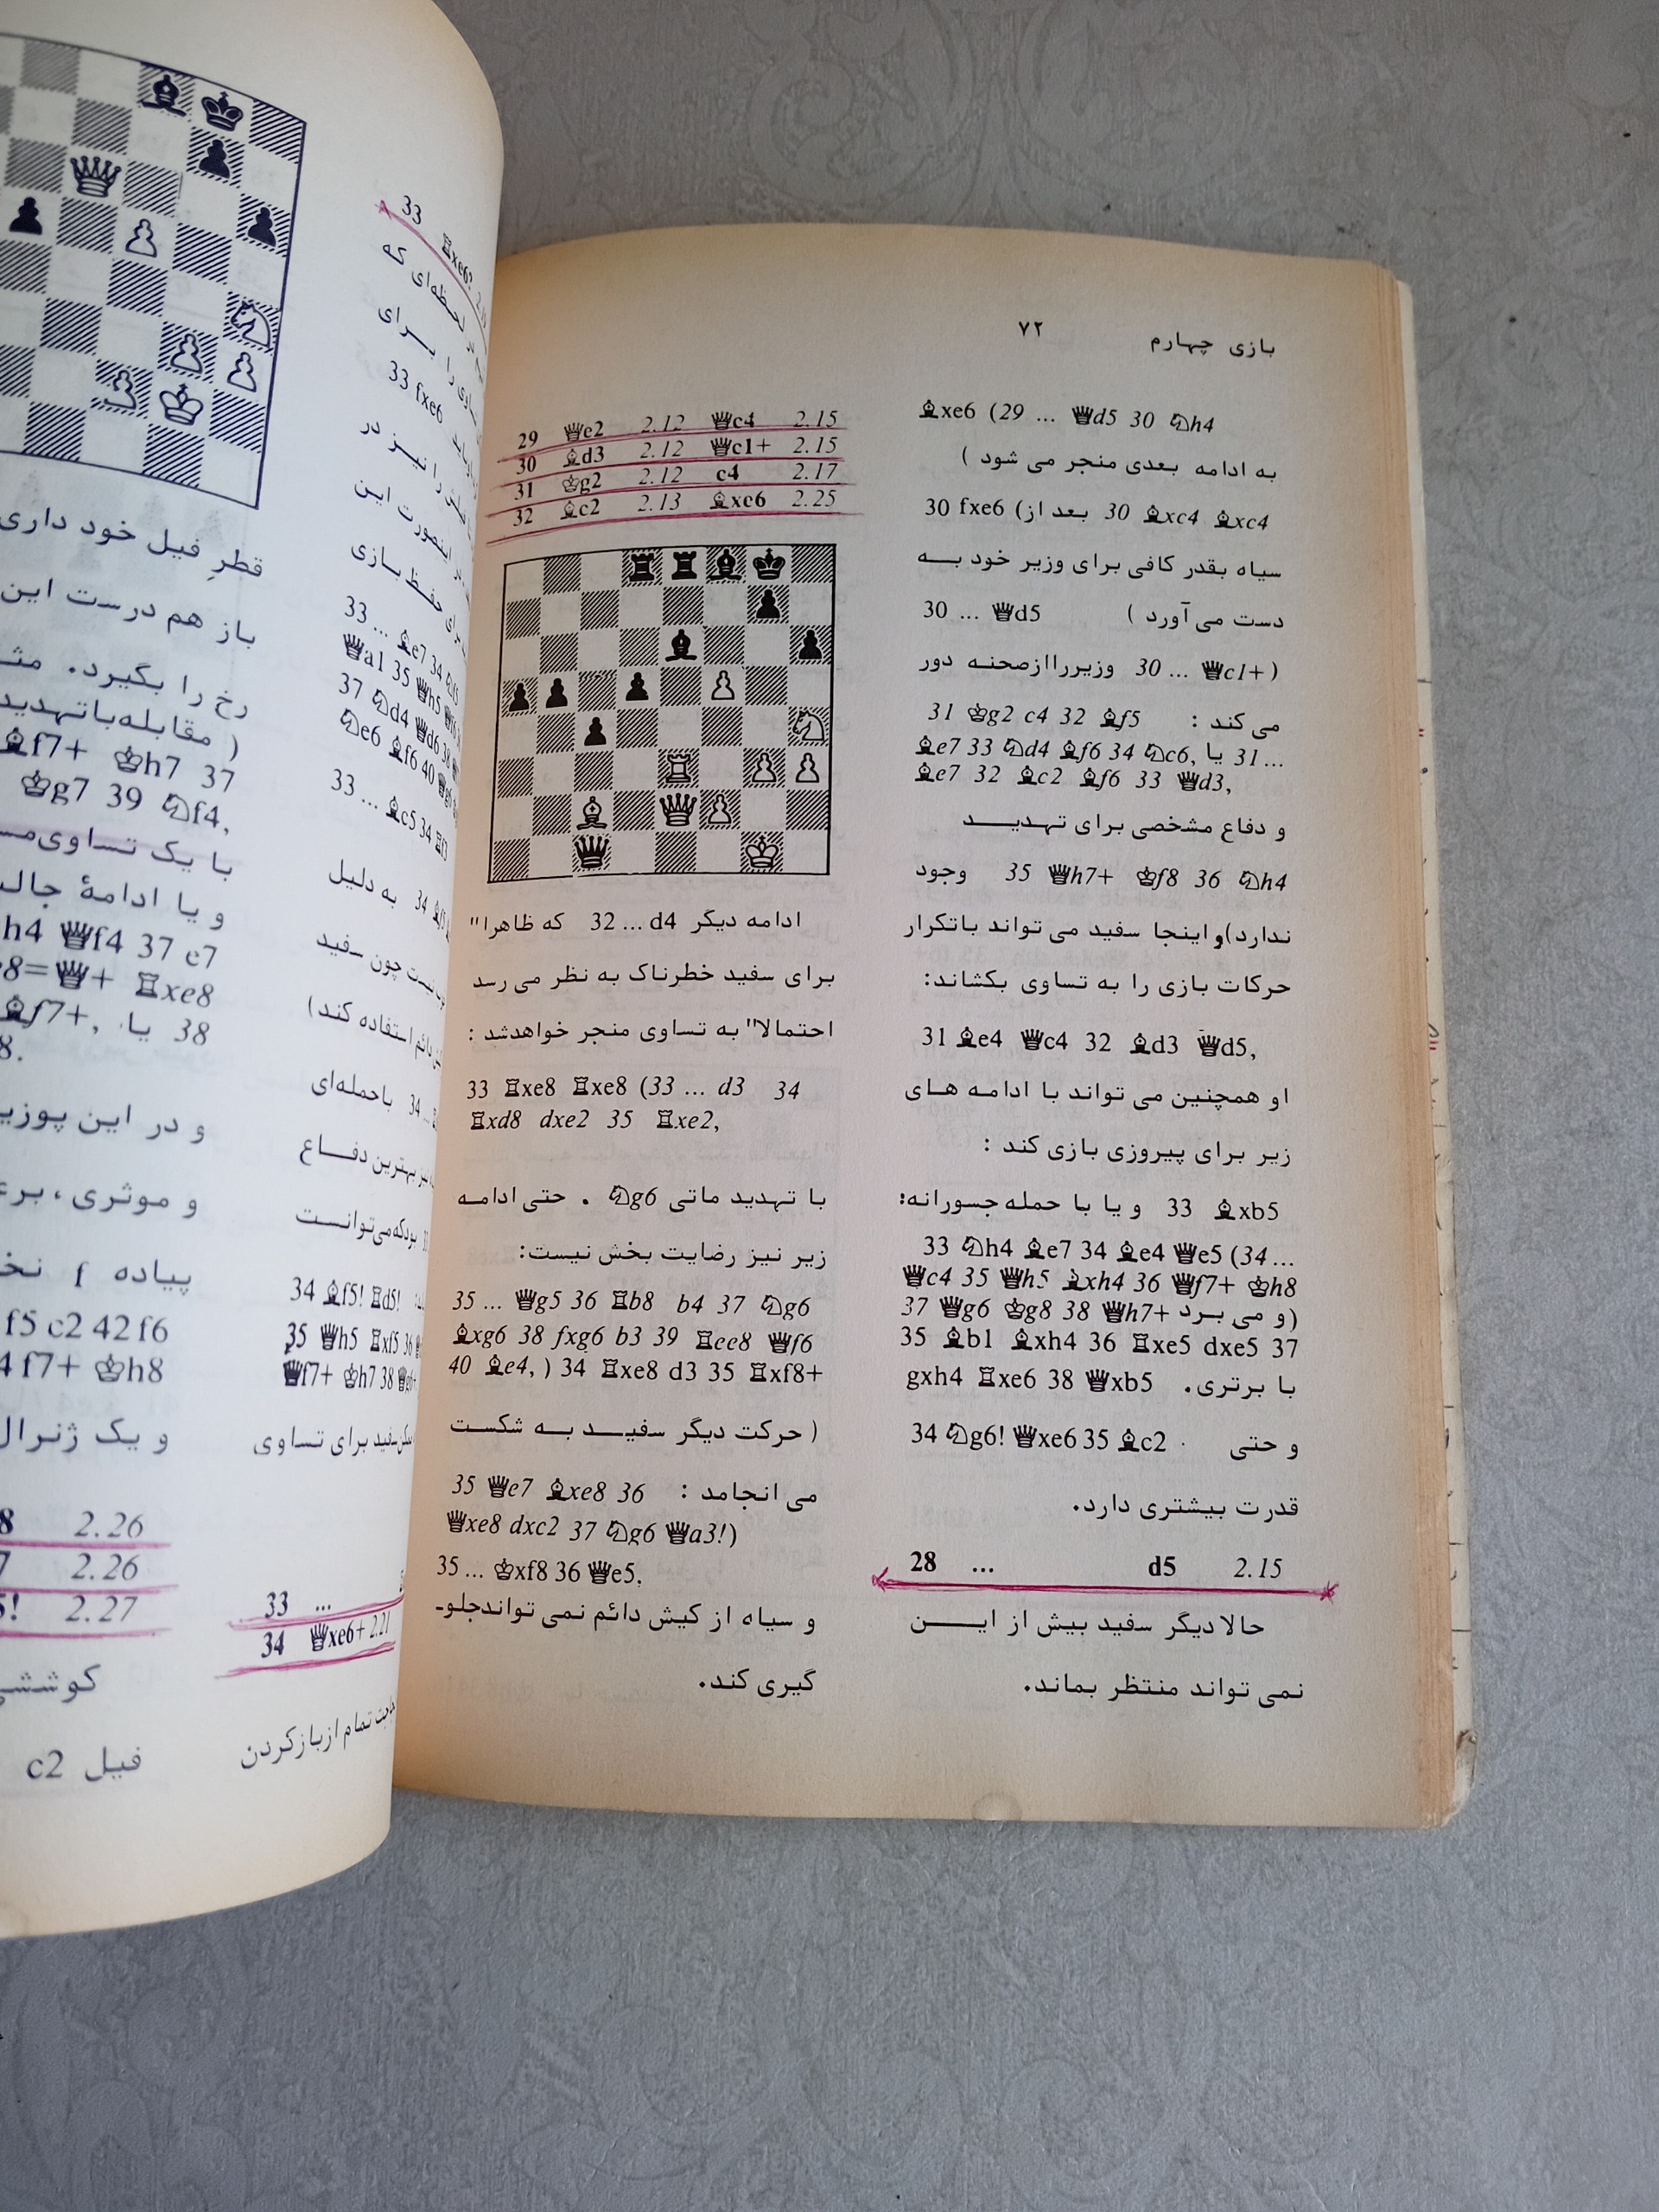 بازی چهارم ۷۲
♝xe6 (29 ... ♛d5 30 ♘h4
به ادامه بعدی منجر می شود )
30 fxe6 (بعد از 30 ♝xc4 ♝xc4
سیاه بقدر کافی برای وزیر خود به
دست می‌آورد ) 30 ... ♛d5
(30 ... ♛c1+ وزیررا ازصحنه دور
می کند : 31 ♔g2 c4 32 ♗f5
♝e7 33 ♘d4 ♝f6 34 ♘c6, یا 31 ...
♝e7 32 ♝c2 ♝f6 33 ♛d3,
و دفاع مشخصی برای تهدید
35 ♛h7+ ♚f8 36 ♘h4 وجود
ندارد) و اینجا سفید می تواند باتکرار
حرکات بازی را به تساوی بکشاند:
31 ♝e4 ♛c4 32 ♝d3 ♛d5,
او همچنین می تواند با ادامه های
زیر برای پیروزی بازی کند :
33 ♝xb5 و یا با حمله جسورانه:
33 ♘h4 ♝e7 34 ♝e4 ♛e5 (34 ...
♛c4 35 ♛h5 ♝xh4 36 ♛f7+ ♚h8
37 ♛g6 ♚g8 38 ♛h7+ و می برد)
35 ♝b1 ♝xh4 36 ♖xe5 dxe5 37
gxh4 ♖xe6 38 ♛xb5 با برتری.
و حتی 34 ♘g6! ♛xe6 35 ♝c2
قدرت بیشتری دارد.
28 ... d5 2.15
حالا دیگر سفید بیش از این
نمی تواند منتظر بماند.
29 ♛e2 2.12 ♛c4 2.15
30 ♝d3 2.12 ♛c1+ 2.15
31 ♔g2 2.12 c4 2.17
32 ♝c2 2.13 ♝xe6 2.25
ادامه دیگر 32 ... d4 که ظاهرا"
برای سفید خطرناک به نظر می رسد
احتمالا" به تساوی منجر خواهدشد :
33 ♖xe8 ♖xe8 (33 ... d3 34
♖xd8 dxe2 35 ♖xe2,
با تهدید ماتی ♘g6 . حتی ادامه
زیر نیز رضایت بخش نیست:
35 ... ♛g5 36 ♖b8 b4 37 ♘g6
♝xg6 38 fxg6 b3 39 ♖ee8 ♛f6
40 ♝e4, ) 34 ♖xe8 d3 35 ♖xf8+
( حرکت دیگر سفید به شکست
می انجامد : 35 ♛e7 ♝xe8 36
♛xe8 dxc2 37 ♘g6 ♛a3!)
35 ... ♚xf8 36 ♛e5,
و سیاه از کیش دائم نمی تواندجلو-
گیری کند.
33 ♖xe6!
لحظه‌ای که
را برای
33 fxe6
را نیز در
اینصورت این
حفظ بازی
33 ... ♝e7 34
♛a1 35 ♛h5
37 ♘d4 ♛d6 38
♘e6 ♝f6 40
33 ... ♝c5 34 ♖f3
34 به دلیل
نیست چون سفید
دائم استفاده کند )
34 ... باحمله‌ای
بهترین دفاع
بودکه می‌توانست
34 ♝f5! ♖d5!
35 ♛h5 ♖xf5 36
♛f7+ ♚h7 38 ♛g6+
سفید برای تساوی
33 ...
34 ♛xe6+ 2.21
تمام ازبازکردن
قطر فیل خود داری
باز هم درست این
رخ را بگیرد.
( مقابله باتهدید
♝f7+ ♚h7 37
♚g7 39 ♘f4,
با یک تساوی
و یا ادامهٔ
h4 ♛f4 37 e7
8=♛+ ♖xe8
♝f7+, یا 38
8.
و در این
و موثری ،
پیاده f
f5 c2 42 f6
4 f7+ ♚h8
و یک ژنرال
8 2.26
7 2.26
! 2.27
فیل c2